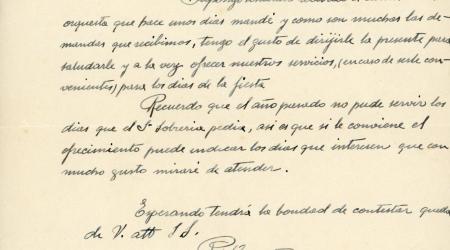 orquesta que hace unos dias mandé y como son muchas las de-
mandas que recibimos, tengo el gusto de dirijirle la presente para
saludarle y a la vez ofrecer nuestros servicios, (en caso de serle con-
venientes) para los dias de la fiesta
Recuerdo que el año pasado no pude servir los
dias que el Sr Sobreria pedia, asi es que si le conviene el
ofrecimiento puede indicar los dias que interesen que con
mucho gusto miraré de atender.
Esperando tendrá la bondad de contestar queda
de V. atto S.S.